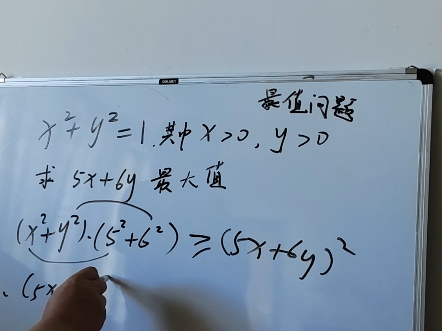 最值问题
x²+y²=1.其中x>0,y>0
求 5x+6y 最大值
(x²+y²)·(5²+6²)≥(5x+6y)²
(5x